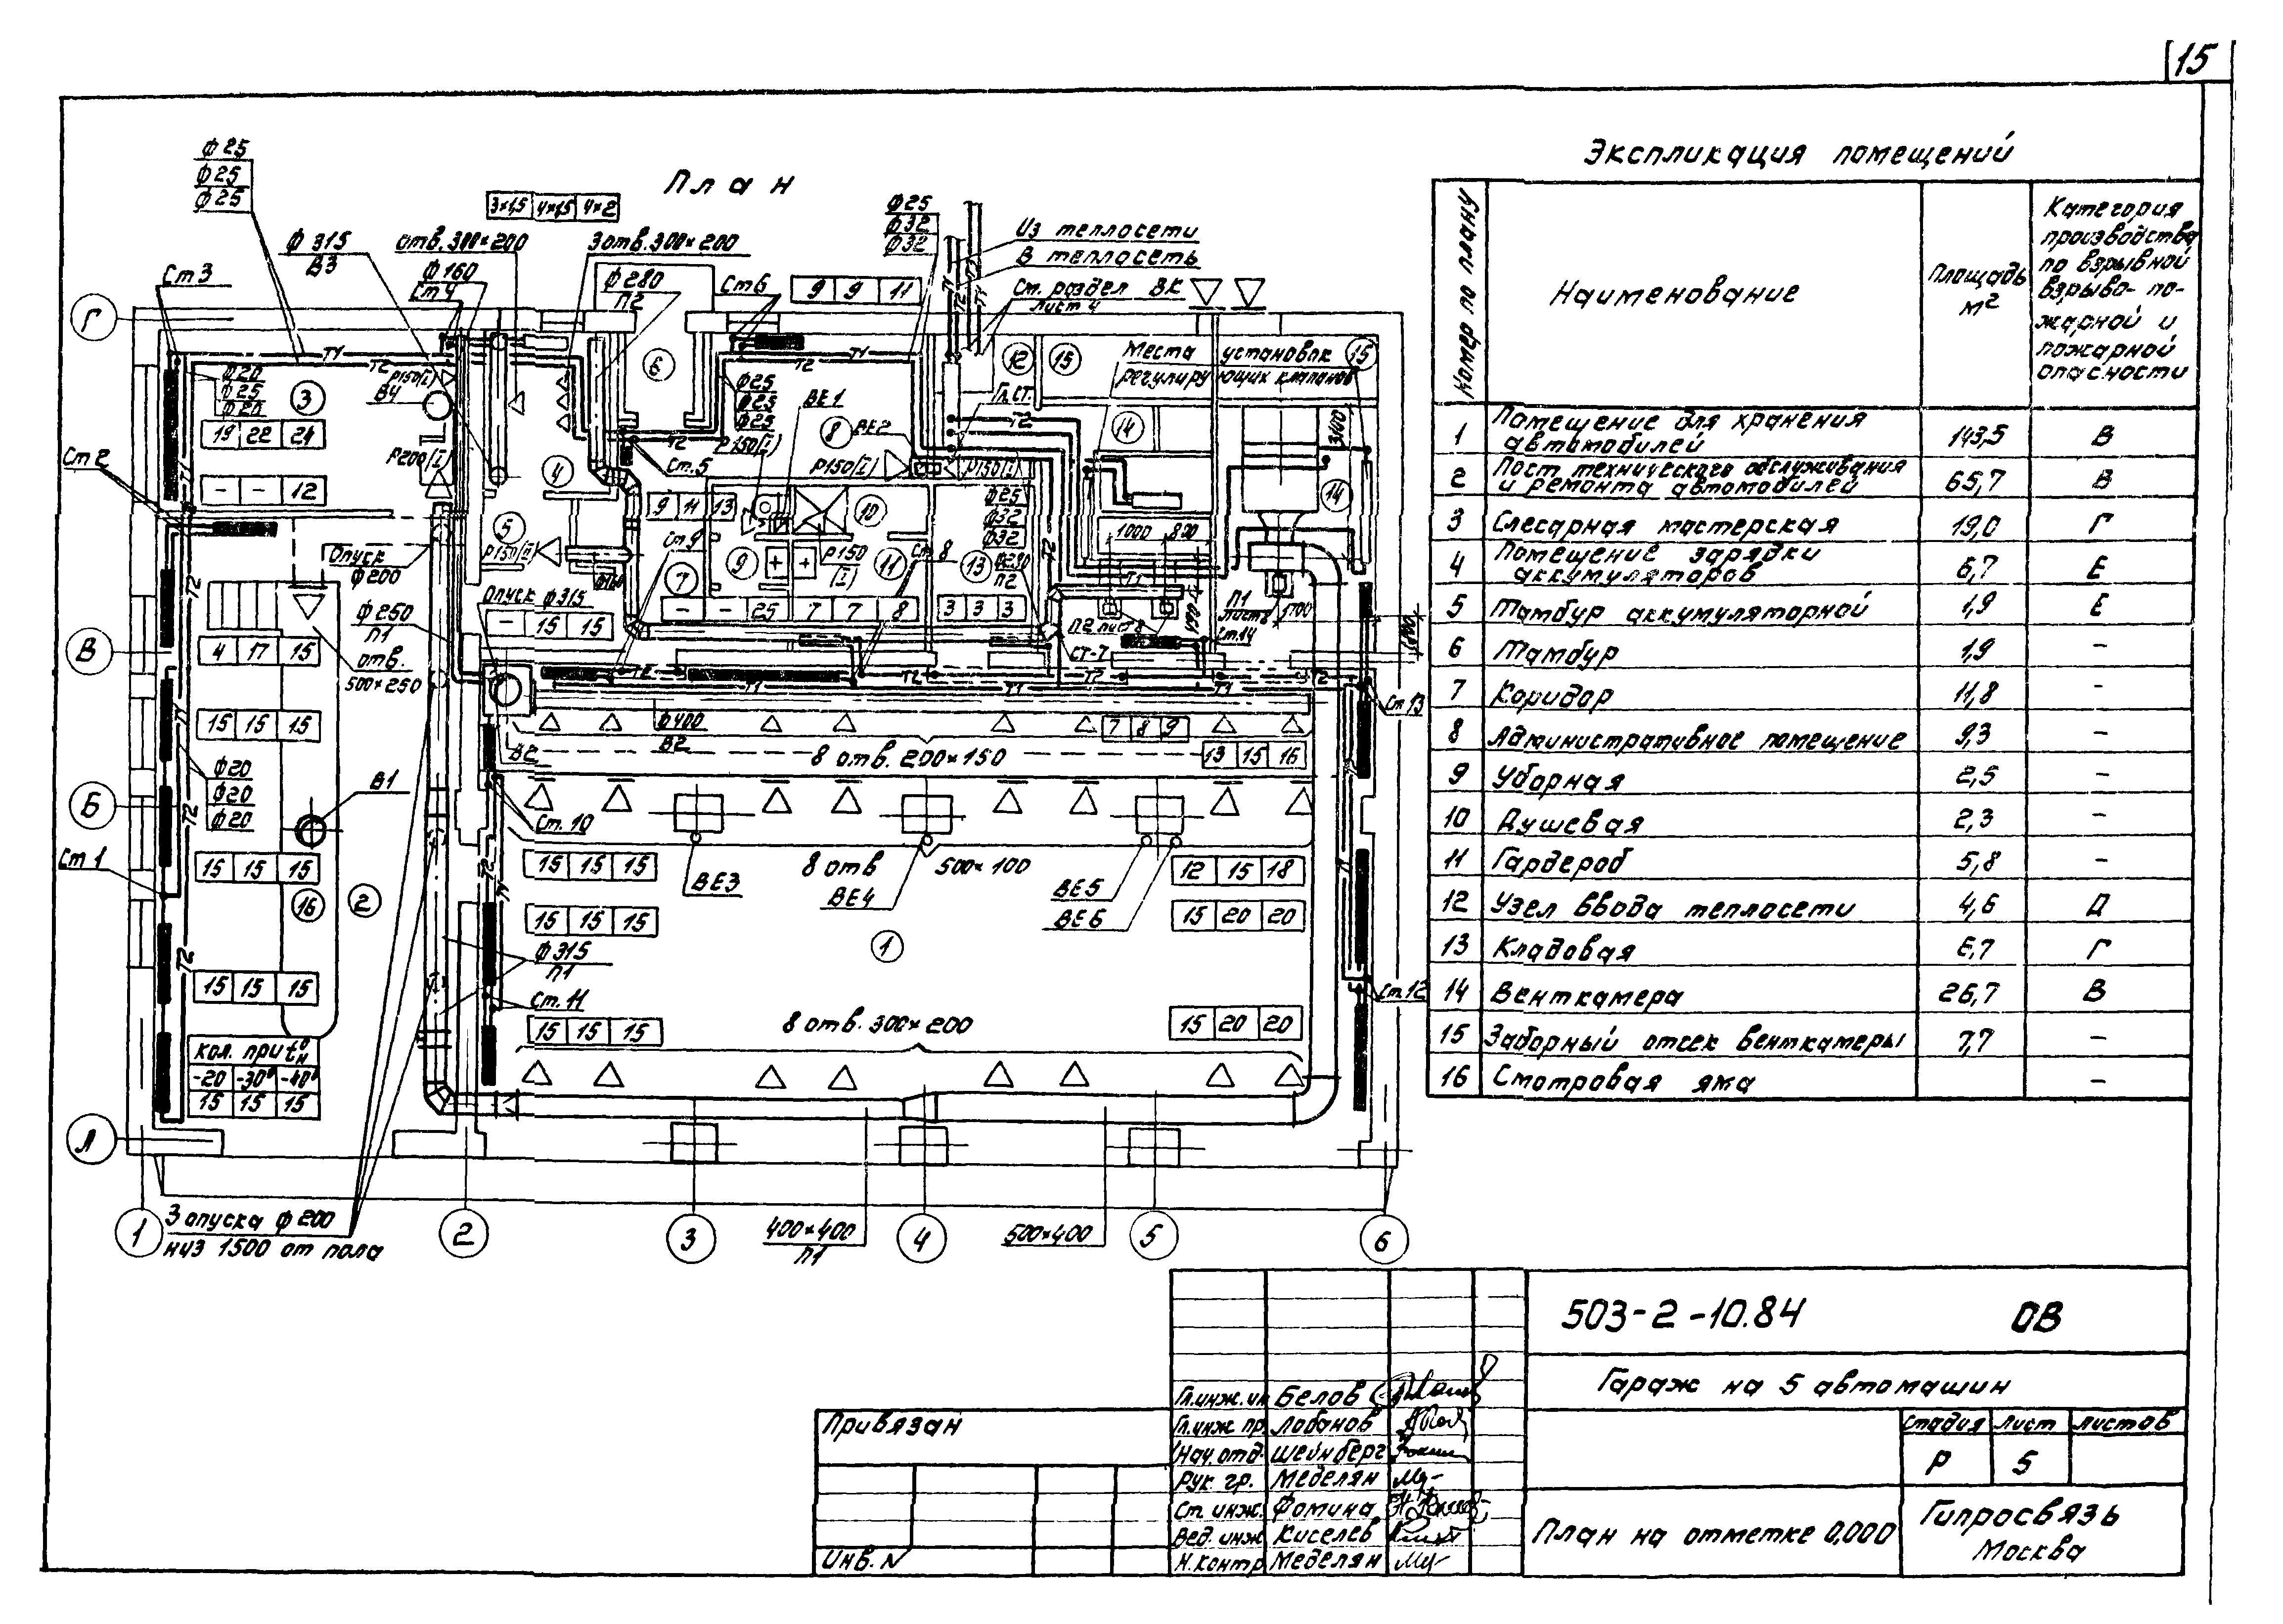 15
План
ф 25
ф 25
ф 25
ф 315
В3
отв. 300×200
ф 160
Ст 4
3×1,5 4×1,5 4×2
3 отв. 300×200
ф 280
П2
Ст 6
9 9 11
ф 25
ф 32
ф 32
Из теплосети
В теплосеть
Ст. раздел ВК
лист 4
Ст 3
Г
Т1
Т2
ф 20
ф 25
ф 20
3
Р150(I)
В4
19 22 24
Ст 2
Р200(I)
- - 12
6
ф 25
ф 25
ф 25
Р150(I)
ВЕ1
8
ВЕ2
Р150(I)
Гл.ст.
Р150(I)
12
15
Места установок
регулирующих клапанов
15
14
3100
14
4
Ст. 5
9 11 13
10
ф 25
ф 32
ф 32
ф 280
П2
5
Р150(II)
Ст 9
9
Р150
(I)
11
Ст. 8
13
1000 800
Опуск
ф 200
7
Опуск ф 315
- - 25 7 7 8
3 3 3
- 15 15
ф 250
П1
П1
1700
Ст. 14
Ст-7
В
4 17 15
отв.
500×250
15 15 15
ф 400
В2
В2
7 8 9
8 отв. 200×150
13 15 16
Ст 13
ф 20
ф 20
ф 20
В1
Б
Ст. 10
Ст 1
15 15 15
15 15 15
ВЕ3
8 отв
500×100
ВЕ4
ВЕ5
ВЕ6
12 15 18
16
2
15 15 15
15 20 20
1
ф 315
П1
15 15 15
Ст. 11
Ст. 12
8 отв. 300×200
15 15 15
15 20 20
кол. при tн°
-20 -30° -40°
15 15 15
Л
3 опуска ф 200
низ 1500 от пола
1
2
3
400×400
П1
4
500×400
5
6
Экспликация помещений
Номер по плану
Наименование
Площадь
м²
Категория
производства
по взрывной
взрыво-по-
жарной и
пожарной
опасности
1 Помещение для хранения автомобилей 143,5 В
2 Пост технического обслуживания и ремонта автомобилей 65,7 В
3 Слесарная мастерская 19,0 Г
4 Помещение зарядки аккумуляторов 6,7 Е
5 Тамбур аккумуляторной 1,9 Е
6 Тамбур 1,9 -
7 Коридор 11,8 -
8 Административное помещение 9,3 -
9 Уборная 2,5 -
10 Душевая 2,3 -
11 Гардероб 5,8 -
12 Узел ввода теплосети 4,6 Д
13 Кладовая 6,7 Г
14 Венткамера 26,7 В
15 Заборный отсек венткамеры 7,7 -
16 Смотровая яма -
503-2-10.84 ОВ
Гараж на 5 автомашин
Стадия Лист Листов
Р 5
План на отметке 0,000
Гипросвязь
Москва
Привязан
Инв. N
Гл.инж.ин Белов
Гл.инж пр. Лобанов
Нач.отд. Шейнберг
Рук. гр. Меделян
Ст. инж. Фомина
Вед. инж Киселев
Н.контр Меделян